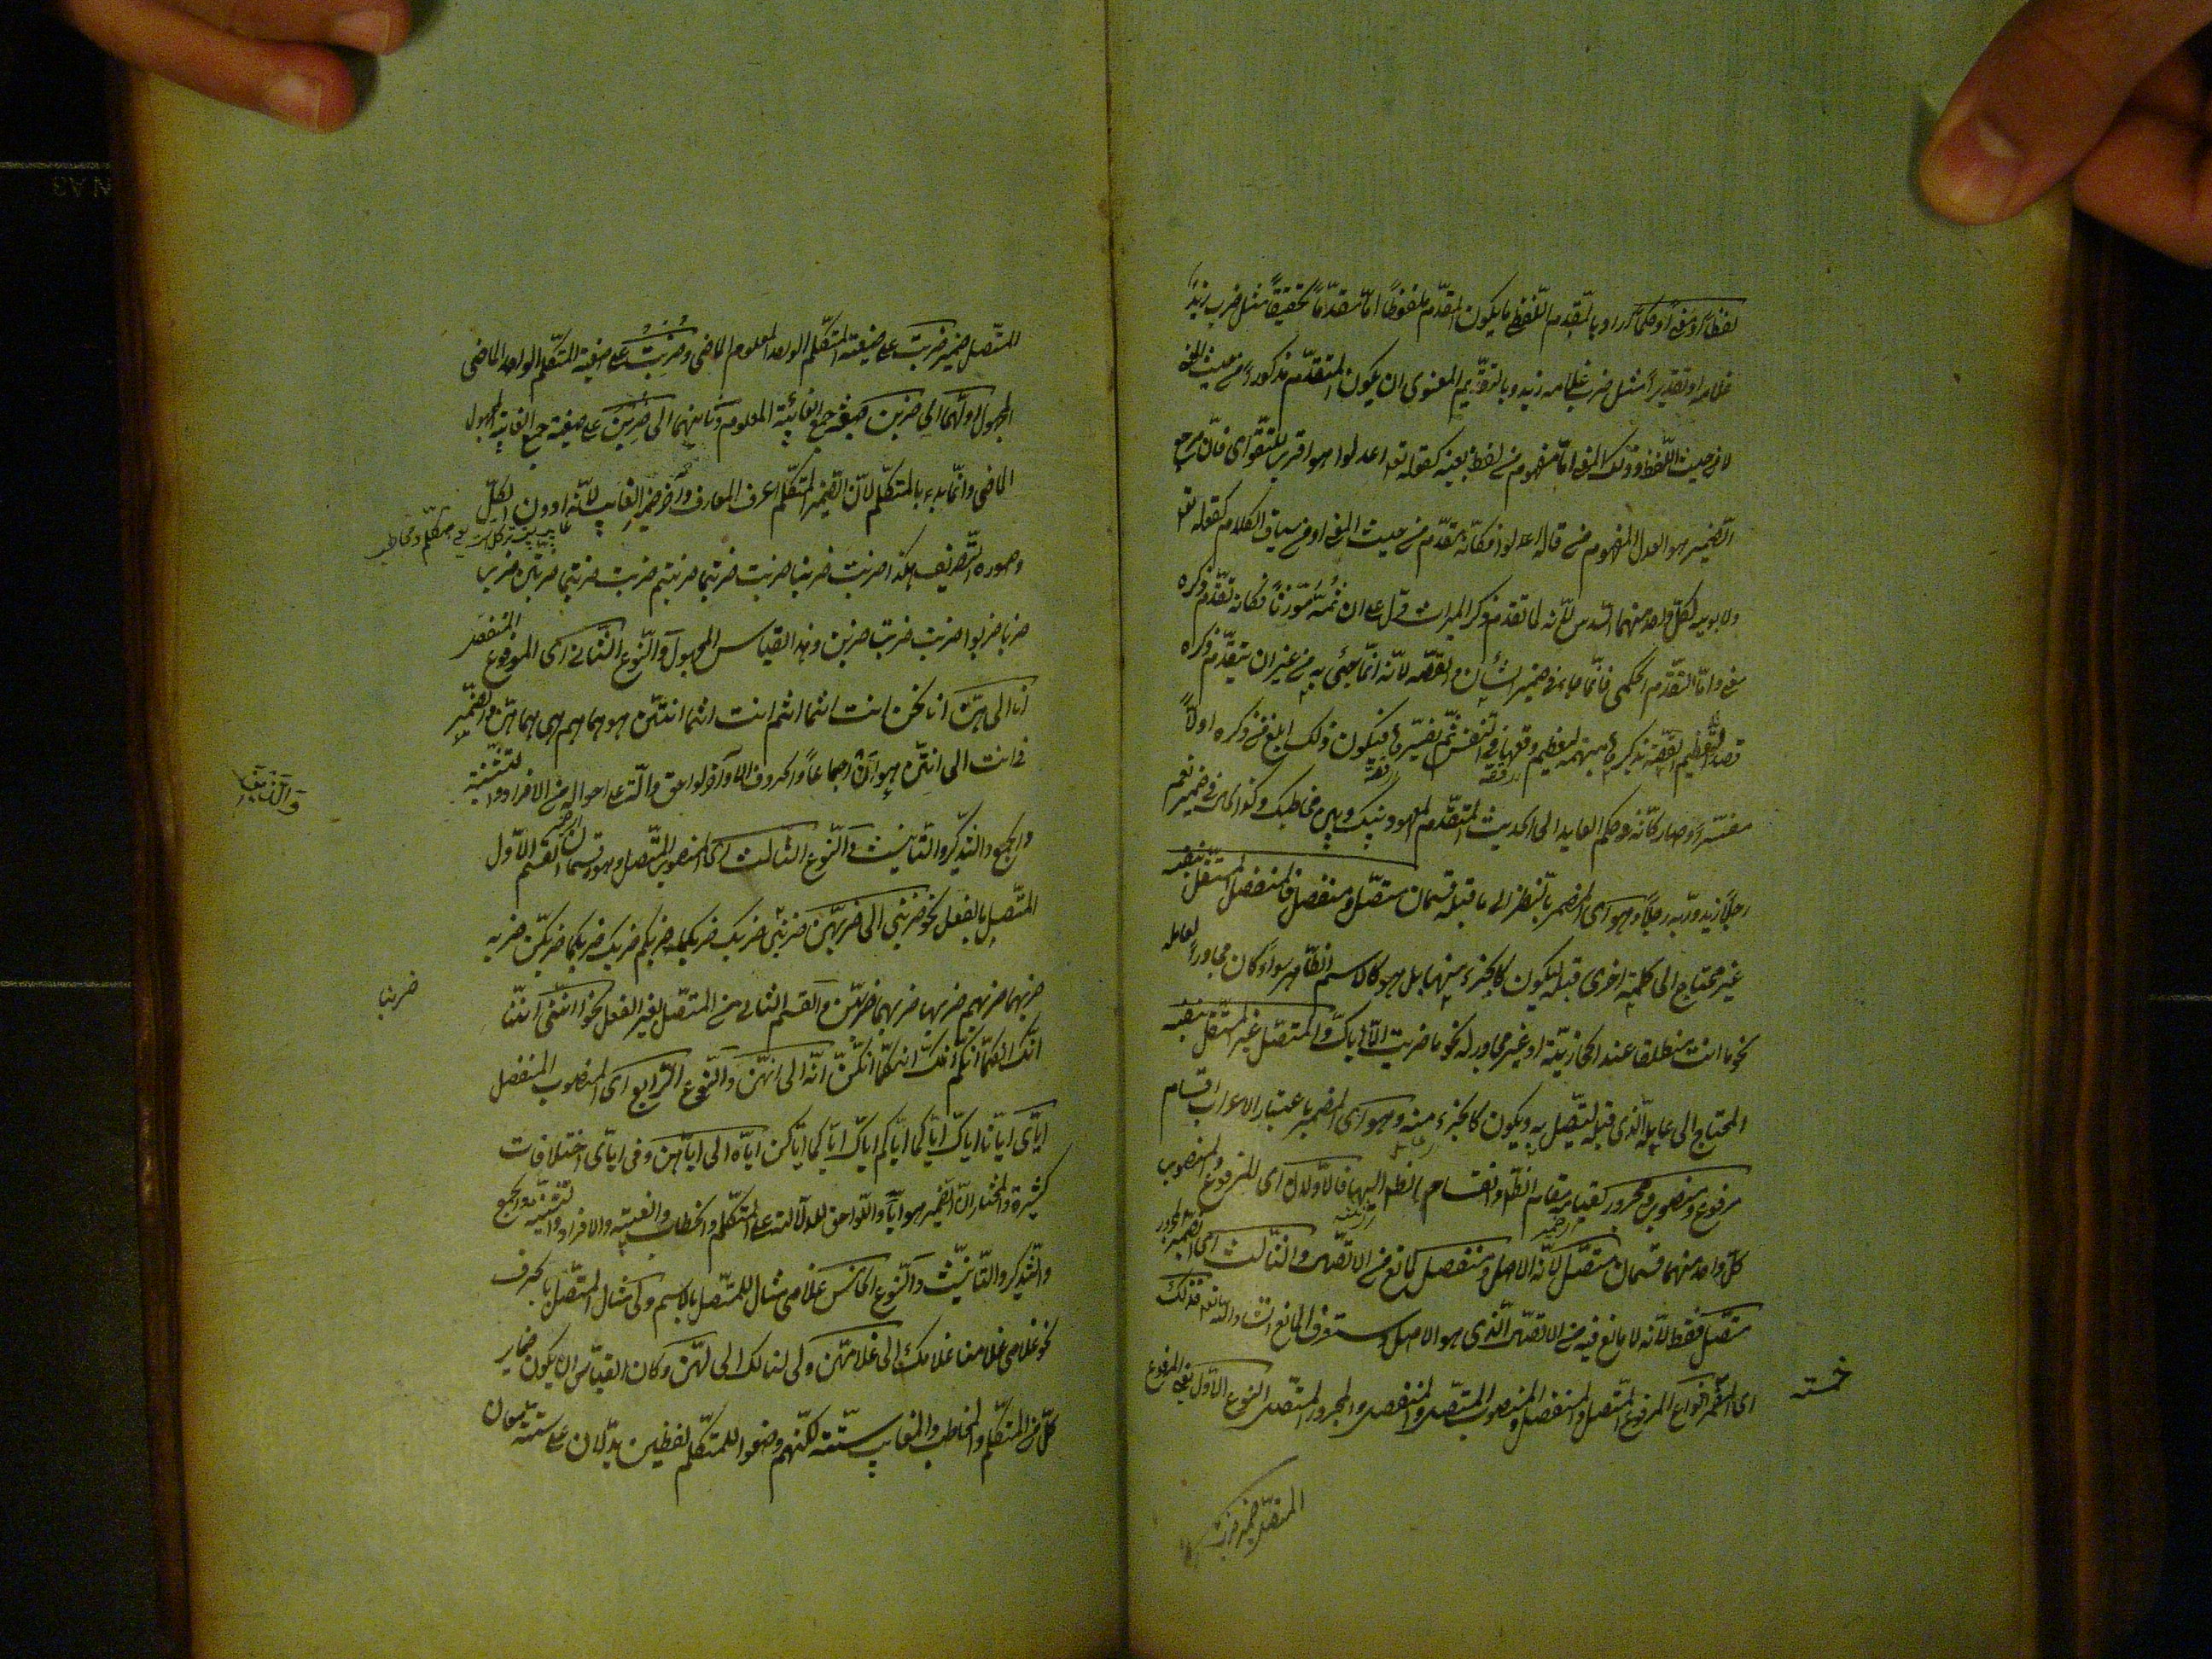 لفظا او معنى او حكما اراد بالتقدم اللفظى ما يكون المتقدم ملفوظا اما متقدما تحقيقا مثل ضرب زيد
غلامه او تقديرا مثل ضرب غلامه زيد وبالتقديم المعنوى ان يكون المتقدم مذكورا من حيث المعنى
لا من حيث اللفظ وذلك المعنى اما مفهوم من لفظ بعينه كقوله تعالى اعدلوا هو اقرب للتقوى فان مرجع
الضمير هو العدل المفهوم من قوله اعدلوا فكانه متقدم من حيث المعنى او من سياق الكلام كقوله تعالى
ولابويه لكل واحد منهما السدس لانه لما تقدم ذكر الميراث دل على ان ثمه مورثا فكانه تقدم ذكره
معنى واما التقدم الحكمى فانما جاء فى ضمير الشان والقصه لانه انما جيئ به من غير ان يتقدم ذكره
قصدا لتعظيم القصة بذكرها مبهمة ليعظم وقعها فى النفس ثم تفسيرها فيكون ذلك ابلغ من ذكره اولا
مفسرا وصار كانه فى حكم العايد الى الحديث المتقدم المعهود بينك وبين مخاطبك وكذا الحال فى ضمير نعم
رجلا زيد وربه رجلا وهو اى المضمر بالنظر الى ما قبله قسمان متصل ومنفصل فالمنفصل المستقل بنفسه
غير محتاج الى كلمة اخرى قبله ليكون كالجزء منها بل هو كالاسم الظاهر سواء كان مجاورا لعامله
نحو ما انت منطلقا عند الحجازية او غير مجاور له نحو ما ضربت الا اياك والمتصل غير المستقل بنفسه
المحتاج الى عامله الذى قبله ليتصل به ويكون كالجزء منه وهو اى المضمر باعتبار الاعراب اقسام
مرفوع ومنصوب ومجرور لقيامه مقام الظاهر وانقسام الظاهر اليها فالاولان اى المرفوع والمنصوب
كل واحد منهما قسمان متصل لانه الاصل ومنفصل لمانع من الاتصال والثالث اى الضمير المجرور
متصل فقط لانه لا مانع فيه من الاتصال الذى هو الاصل وستعرف المانع انشاء الله تعالى فذلك
خمسة
اى المضمر انواع المرفوع المتصل والمنفصل والمنصوب المتصل والمنفصل والمجرور المتصل النوع الاول يعنى المرفوع
المتصل ضمير ضربت
المتصل ضمير ضربت على صيغة المتكلم الواحد المعلوم الماضى وضربت على صيغة المتكلم الواحد الماضى
المجهول اولهما الى ضربن صيغة جمع الغائبة المعلوم وثانيهما الى ضربن على صيغة جمع الغائبة المجهول
الماضى وانما بدء بالمتكلم لان الضمير المتكلم اعرف المعارف واخر ضمير الغايب لانه ادون الكل
وصورة التصريف هكذا ضربت ضربنا ضربت ضربتما ضربتم ضربت ضربتما ضربتن ضرب
ضربا ضربوا ضربت ضربتا ضربن وبهذا القياس المجهول والنوع الثانى اى المرفوع المنفصل
انا الى هن انا نحن انت انتما انتم انت انتما انتن هو هما هم هى هما هن والضمير
فى انت الى انتن هو ان اجماعا والحروف الاواخر لواحق دالة على احواله من الافراد والتثنية
والجمع والتذكير والتانيث والنوع الثالث اى المنصوب المتصل وهو قسمان القسم الاول
المتصل بالفعل نحو ضربنى الى ضربهن ضربنى ضربك ضربكما ضربكم ضربك ضربكما ضربكن ضربه
ضربنا
ضربهما ضربهم ضربها ضربهما ضربهن والقسم الثانى من المتصل بغير الفعل نحو اننى اننا
انك انكما انكم انك انكما انكن انه الى انهن والنوع الرابع اى المنصوب المنفصل
اياى ايانا اياك اياكما اياكم اياك اياكما اياكن اياه الى اياهن وفى اياى اختلافات
كثيرة والمختار ان الضمير هو ايا واللواحق للدلالة على المتكلم والخطاب والغيبة والافراد والتثنية والجمع
والتذكير والتانيث والنوع الخامس غلامى مثال للمتصل بالاسم ولى مثال المتصل بالحرف
نحو غلامى غلامنا غلامك الى غلامهن ولى لنا لك الى لهن وكان القياس ان يكون ضماير
كل من المتكلم والمخاطب والغايب ستة لكنهم وضعوا للمتكلم لفظين يدلان على ستة معان